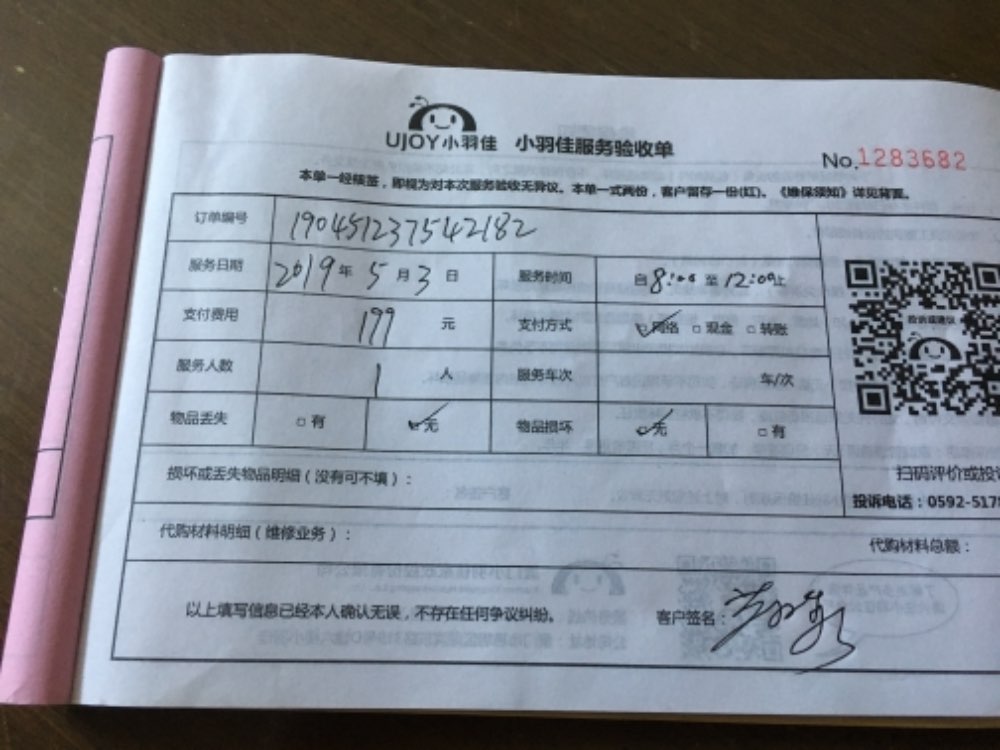 UJOY小羽佳 小羽佳服务验收单
No.1283682
本单一经核签，即视为对本次服务验收无异议。本单一式两份，客户留存一份(红)。《维保须知》详见背面。
订单编号 190451237542182
服务日期 2019年5月3日 服务时间 自8:00至12:00止
支付费用 177元 支付方式 ☑网络 □现金 □转账
投诉或建议
服务人数 1人 服务车次 车/次
物品丢失 □有 ☑无 物品损坏 ☑无 □有
损坏或丢失物品明细（没有可不填）：
扫码评价或投
投诉电话：0592-517
代购材料明细（维修业务）：
代购材料总额：
以上填写信息已经本人确认无误，不存在任何争议纠纷。 客户签名：